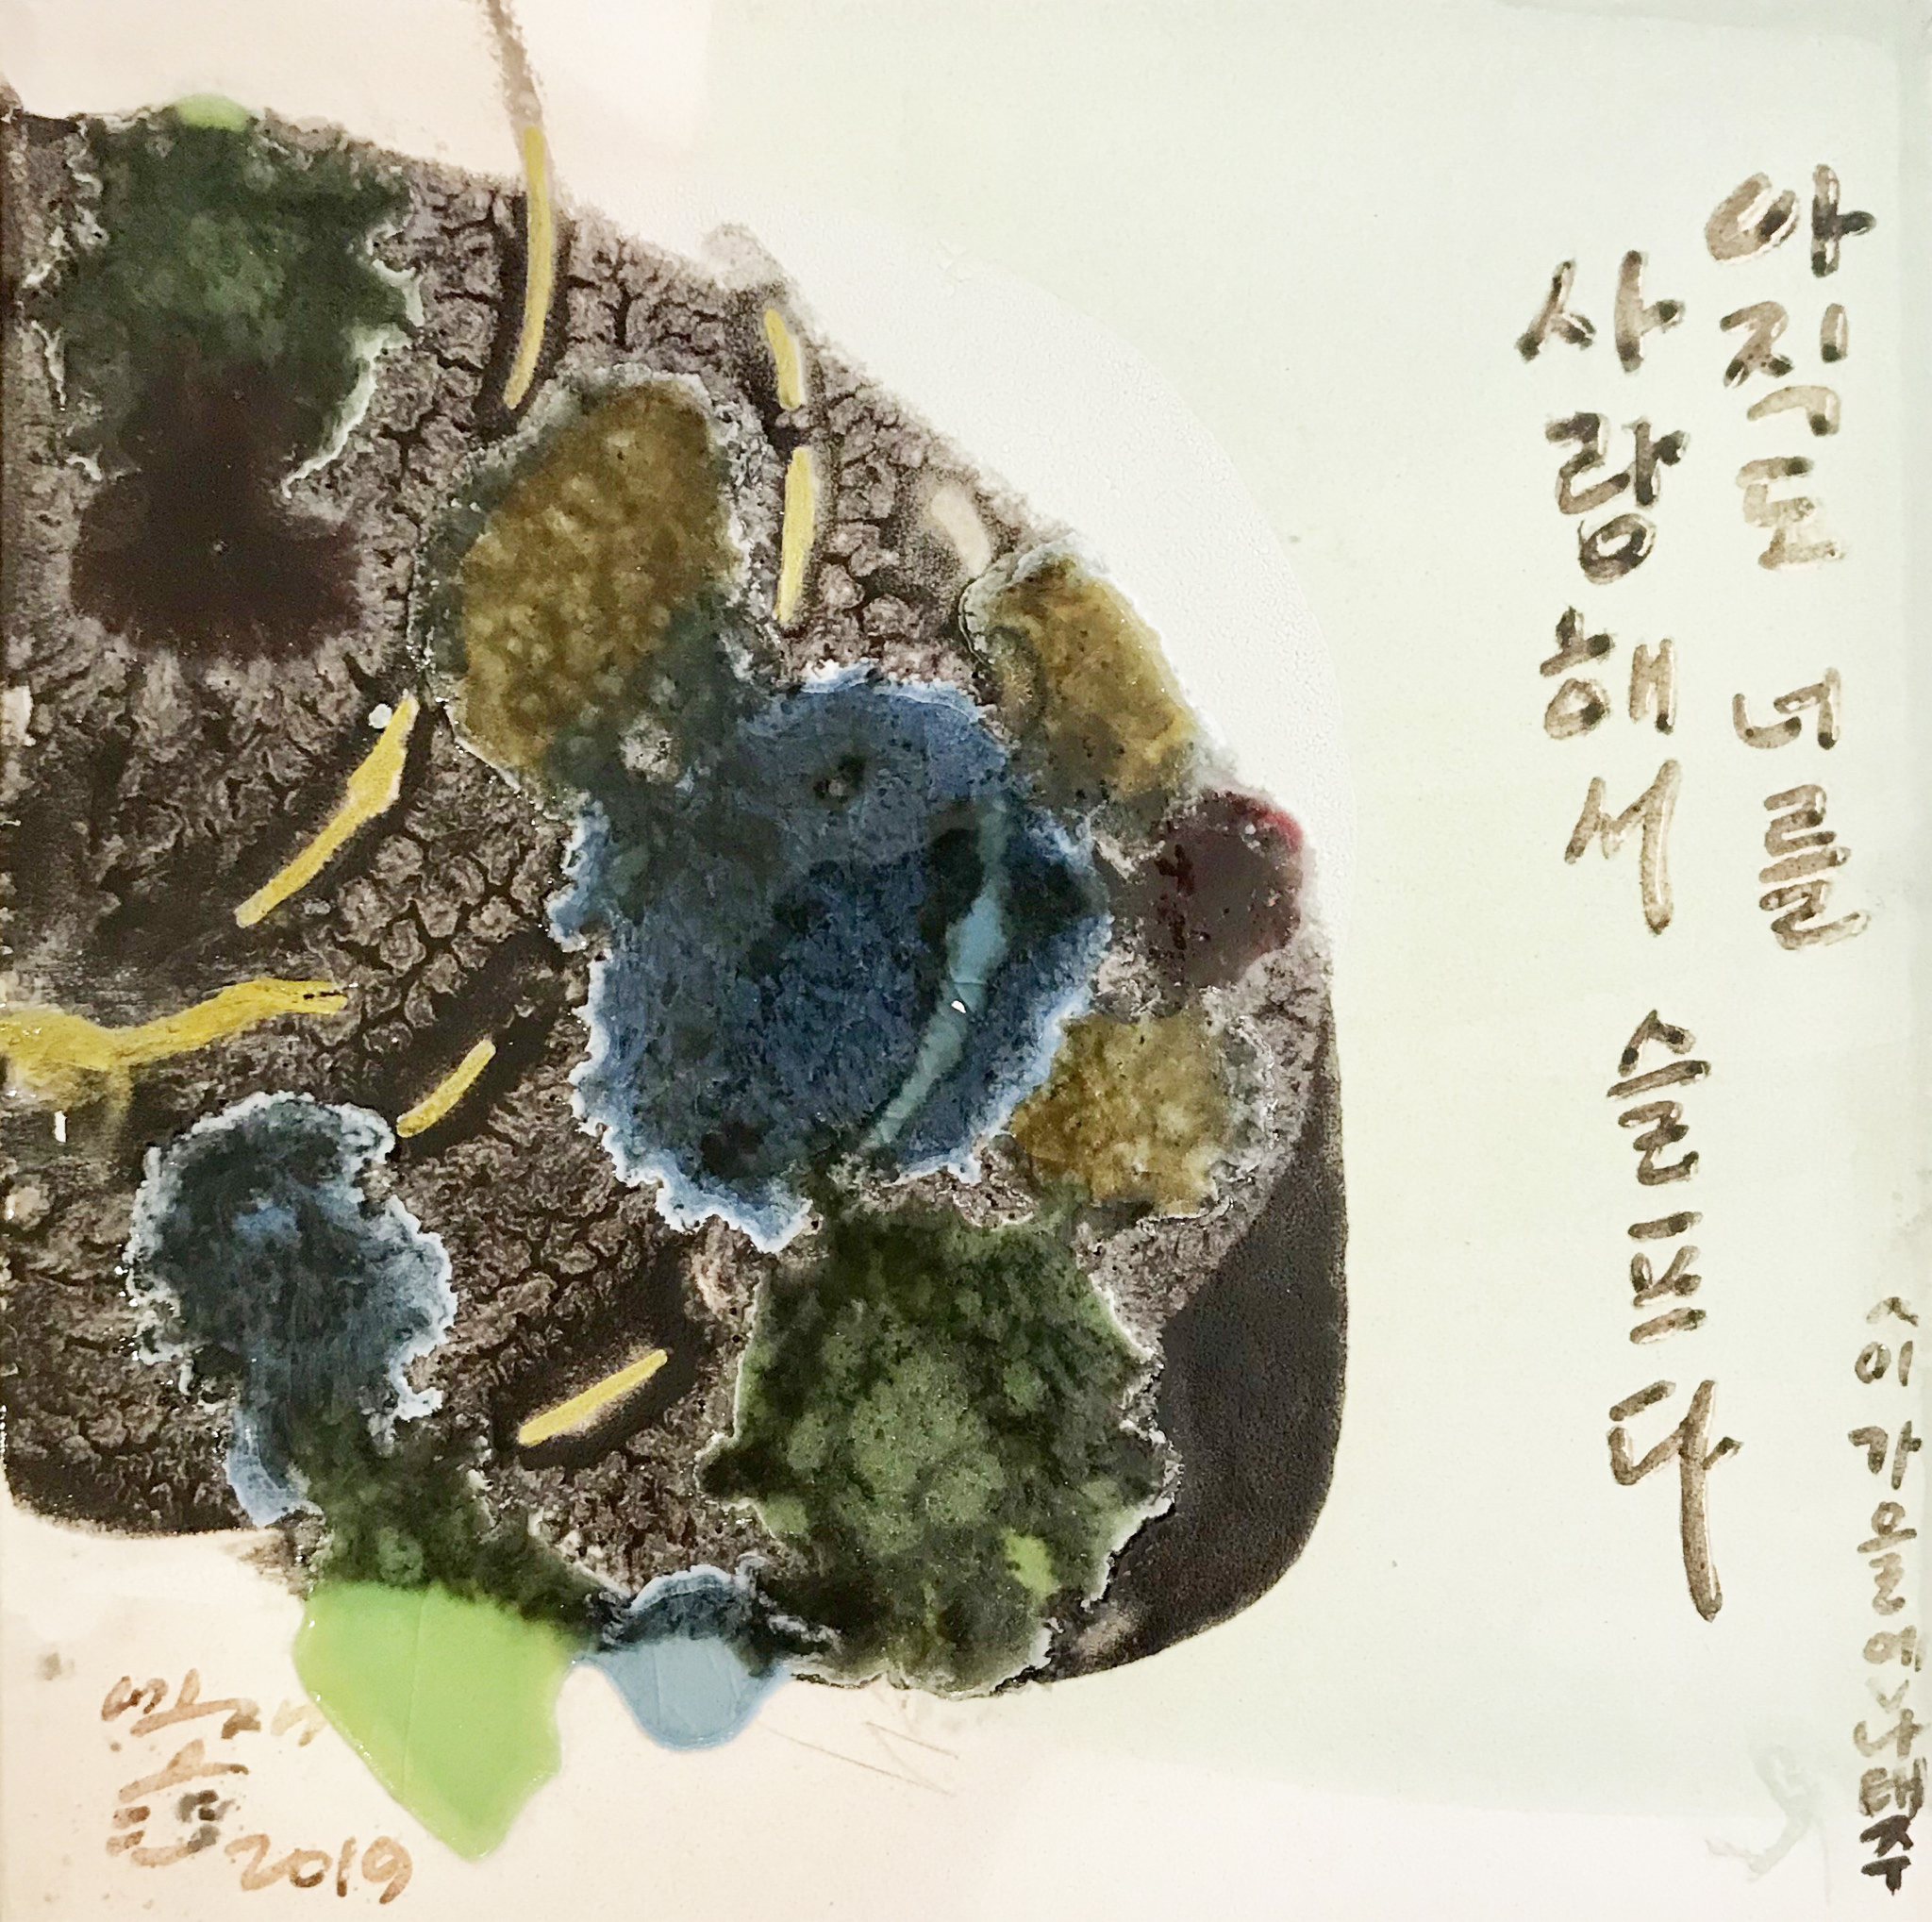 아직도 너를
사랑해서 슬프다
<이 가을에> 나태주
2019